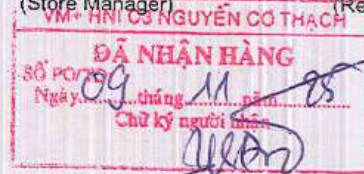 (Store Manager) (Re
VM+ HNI C3 NGUYỄN CƠ THẠCH
ĐÃ NHẬN HÀNG
SỐ PO/
Ngày 09 tháng 11 năm 25
Chữ ký người nhận